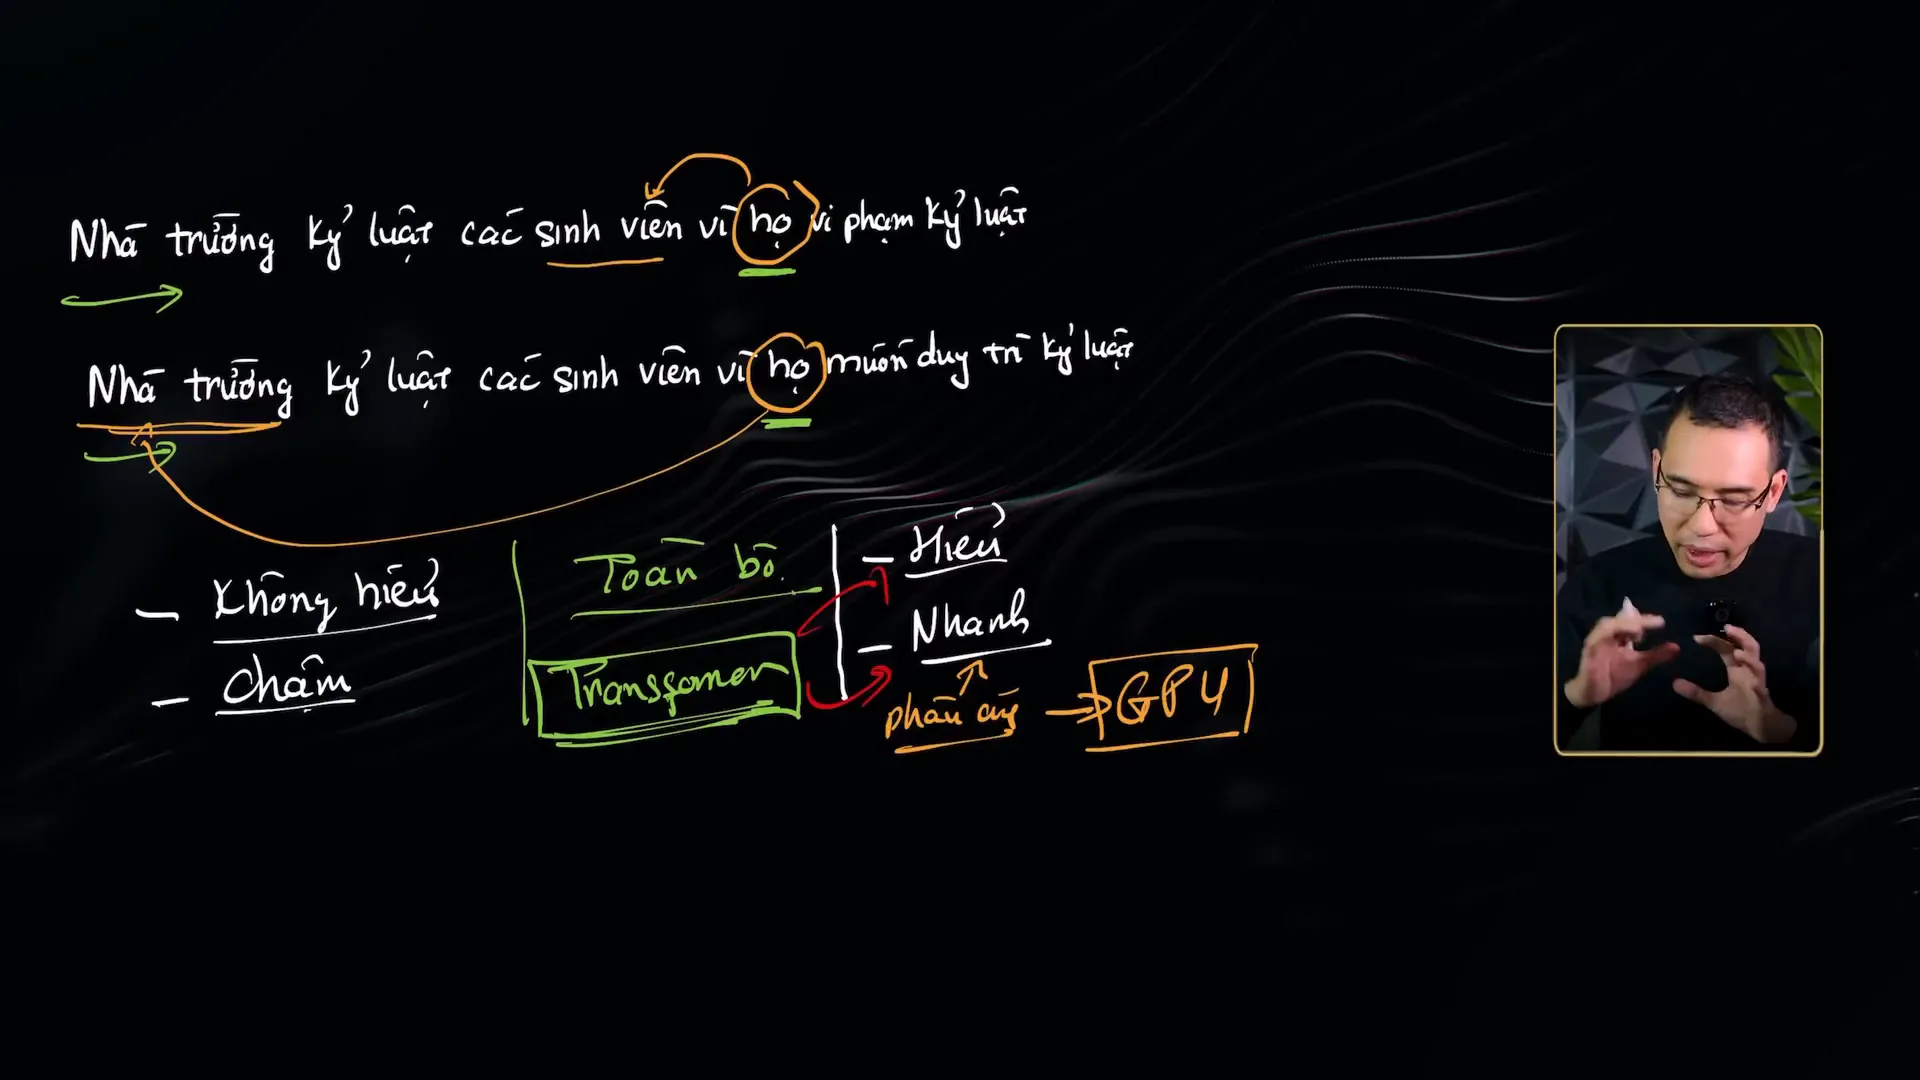 Nhà trường kỷ luật các sinh viên vì họ vi phạm kỷ luật
Nhà trường kỷ luật các sinh viên vì họ muốn duy trì kỷ luật
- Không hiểu
- Chậm
Toàn bộ
Transfomer
- Hiểu
- Nhanh
phần cứng → GPU